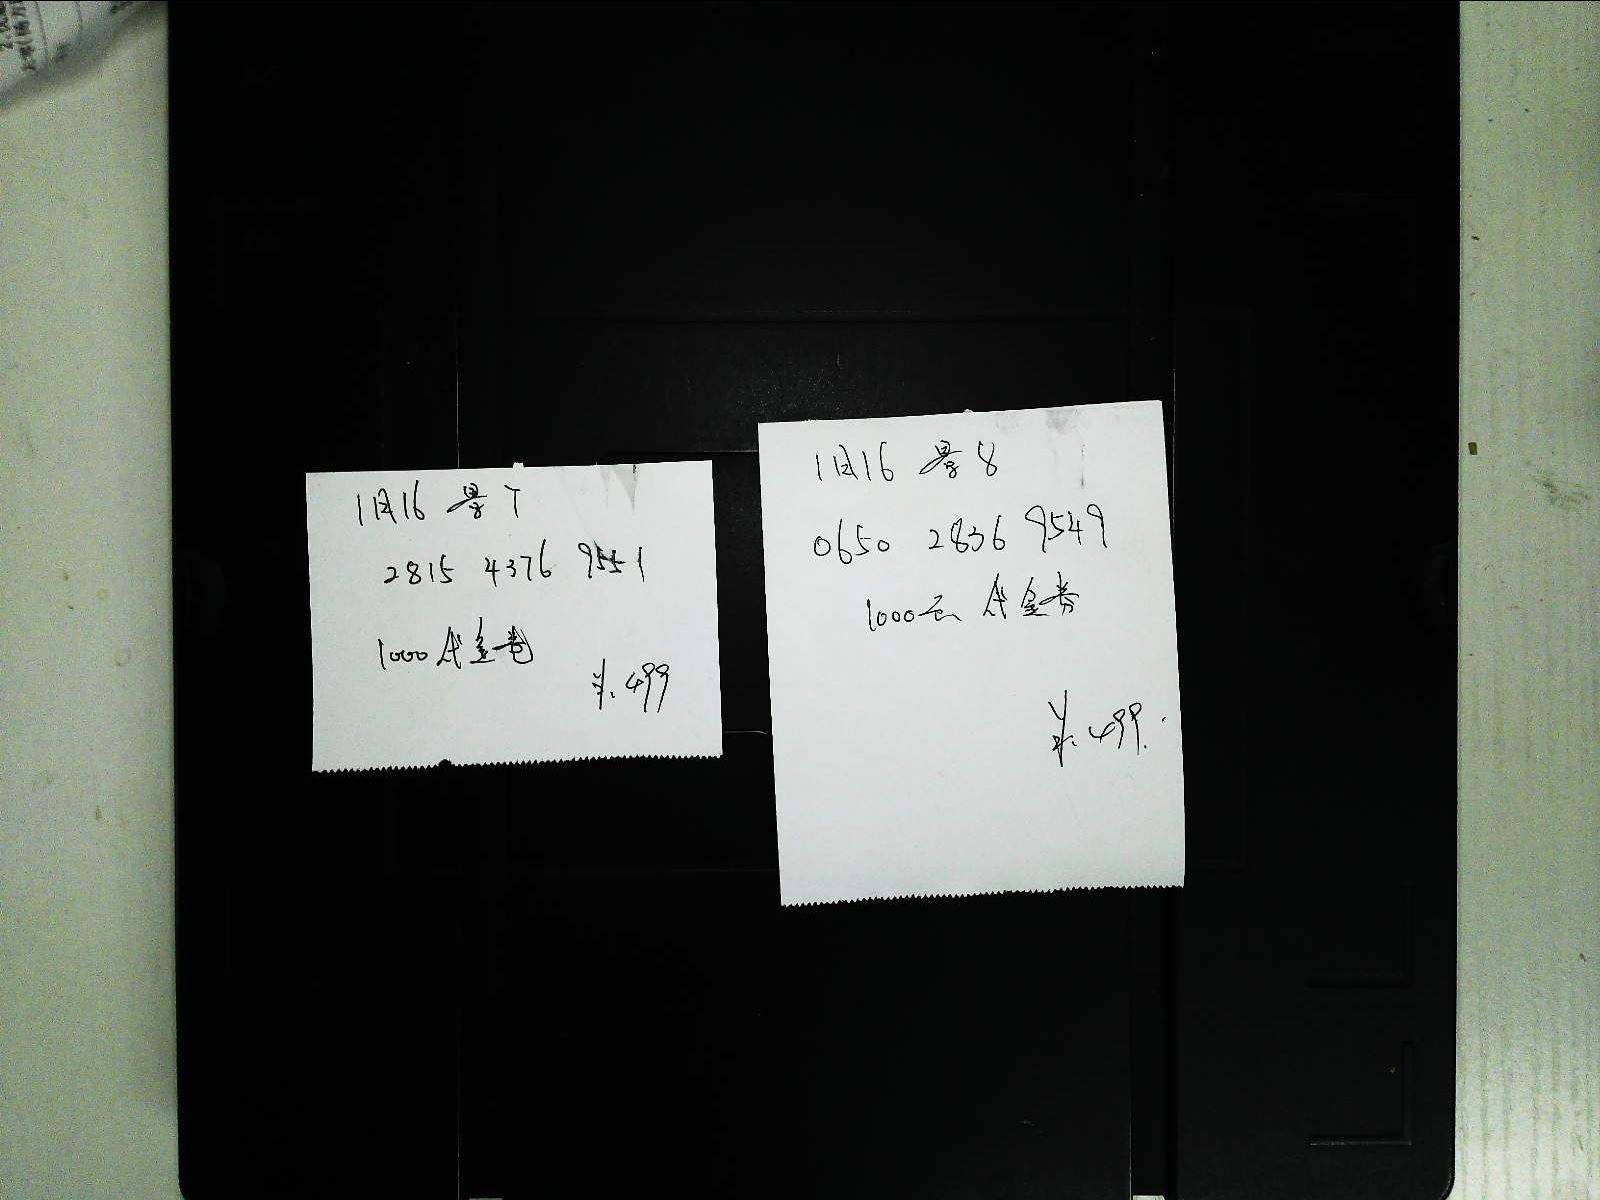 1月16 景T
2815 4376 9551
1000代金卷
¥.499
1月16 景8
0650 2836 9549
1000元 代金券
¥.499.